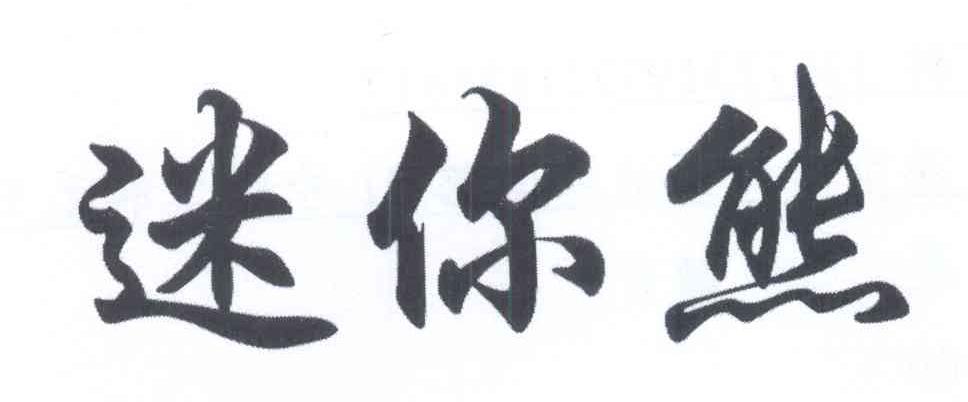 迷你熊